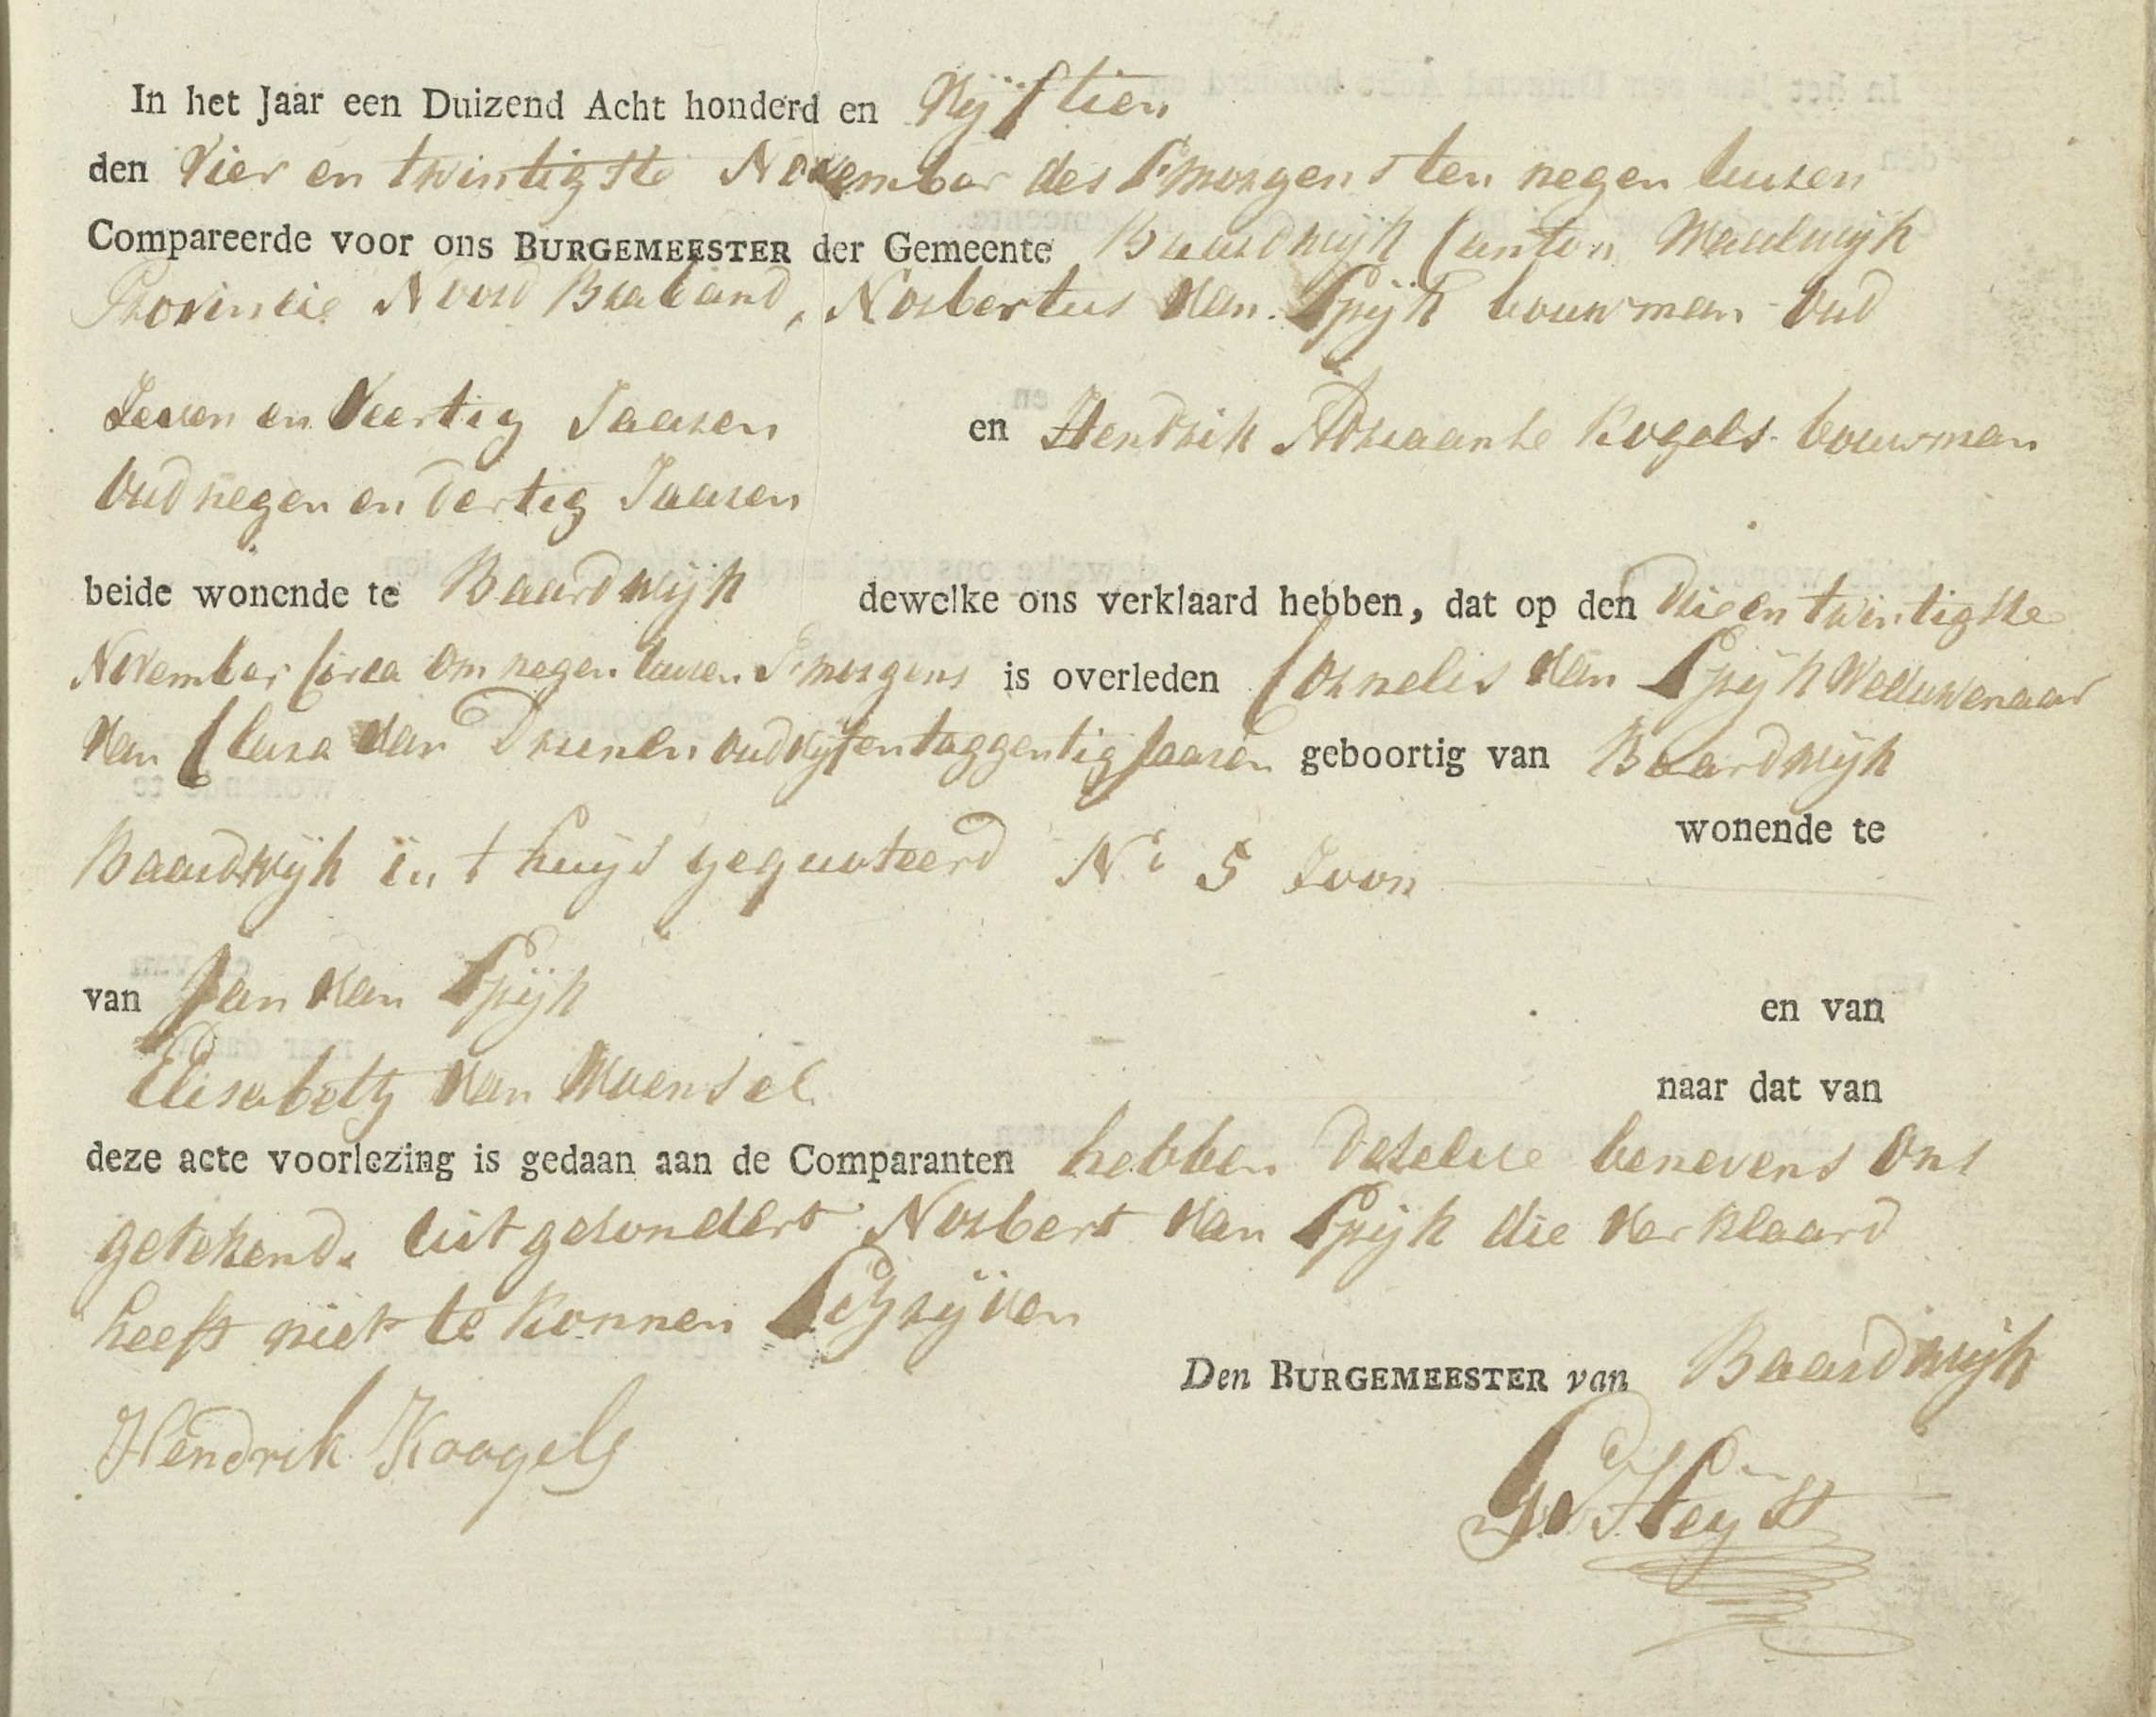 In het Jaar een Duizend Acht honderd en Vijftien
den Vier en twintigste November des Smorgens ten negen uuren
Compareerde voor ons BURGEMEESTER der Gemeente Baardwijk Canton Waalwijk
Provincie Noord Braband, Norbertus van Spijk bouwman oud
Zeeven en Veertig Jaaren en Hendrik Adriaanse Kogels bouwman
Oud negen en dertig Jaaren
beide wonende te Baardwijk dewelke ons verklaard hebben, dat op den drie en twintigste
November Circa om negen uuren Smorgens is overleden Cornelis van Spijk Weduwenaar
van Clara van Drunen oud vijf en taggentig Jaaren geboortig van Baardwijk
wonende te
Baardwijk in t huijs gequoteerd No 5 Zoon
van Jan van Spijk en van
Elisabeth van Woensel naar dat van
deze acte voorlezing is gedaan aan de Comparanten hebben deselve benevens Ons
getekend. uitgesondert Norbert van Spijk die verklaard
heeft niet te konnen Schrijven
Den BURGEMEESTER van Baardwijk
Hendrik Koogels